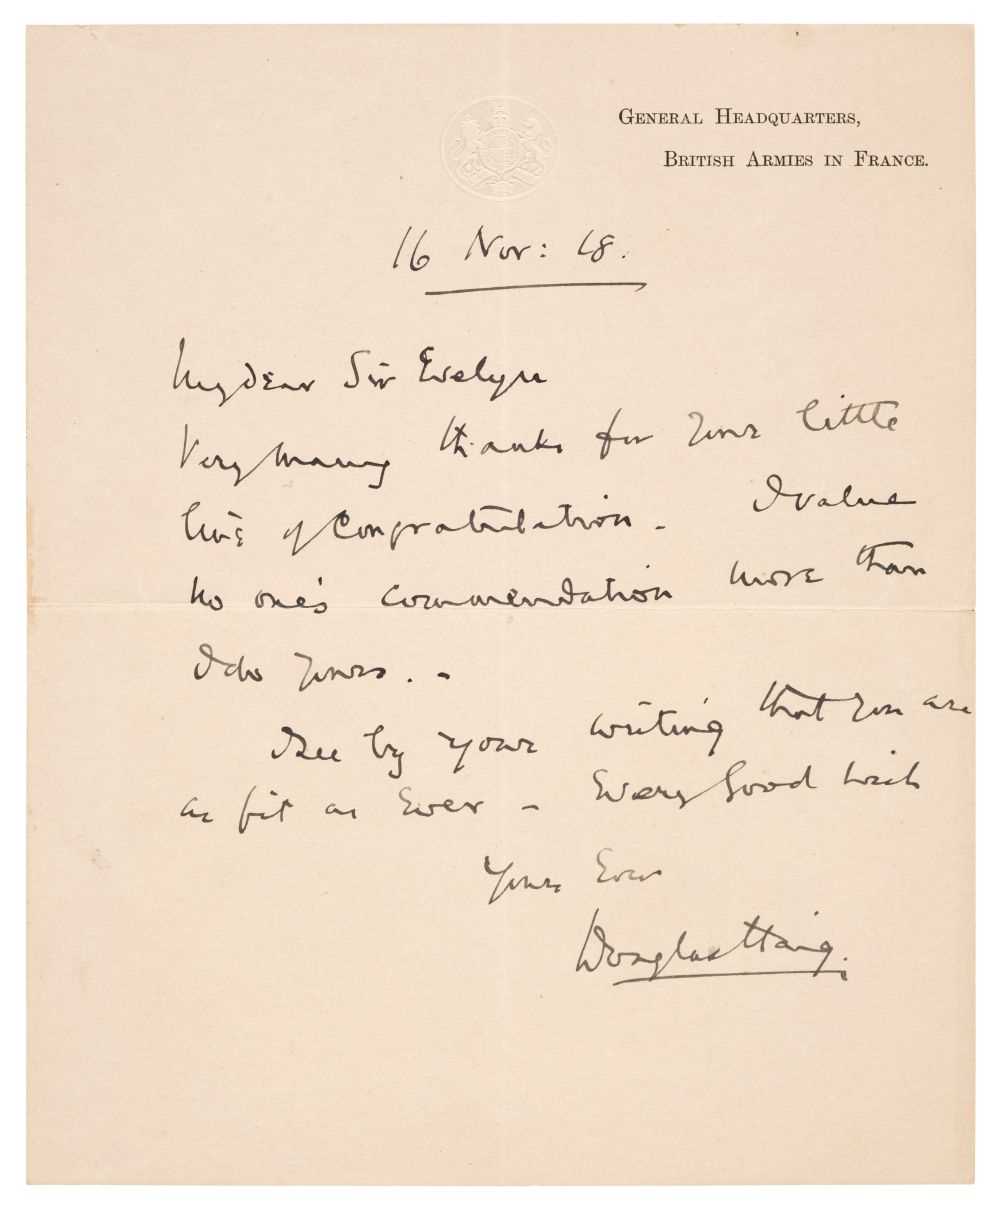 General Headquarters,
British Armies in France.
16 Nov: 18.
My dear Sir Evelyn
Very many thanks for your little
line of Congratulation - I value
no one's commendation more than
I do yours. -
I see by your writing that you are
as fit as Ever - Every Good wish
Yours Ever
Douglas Haig.